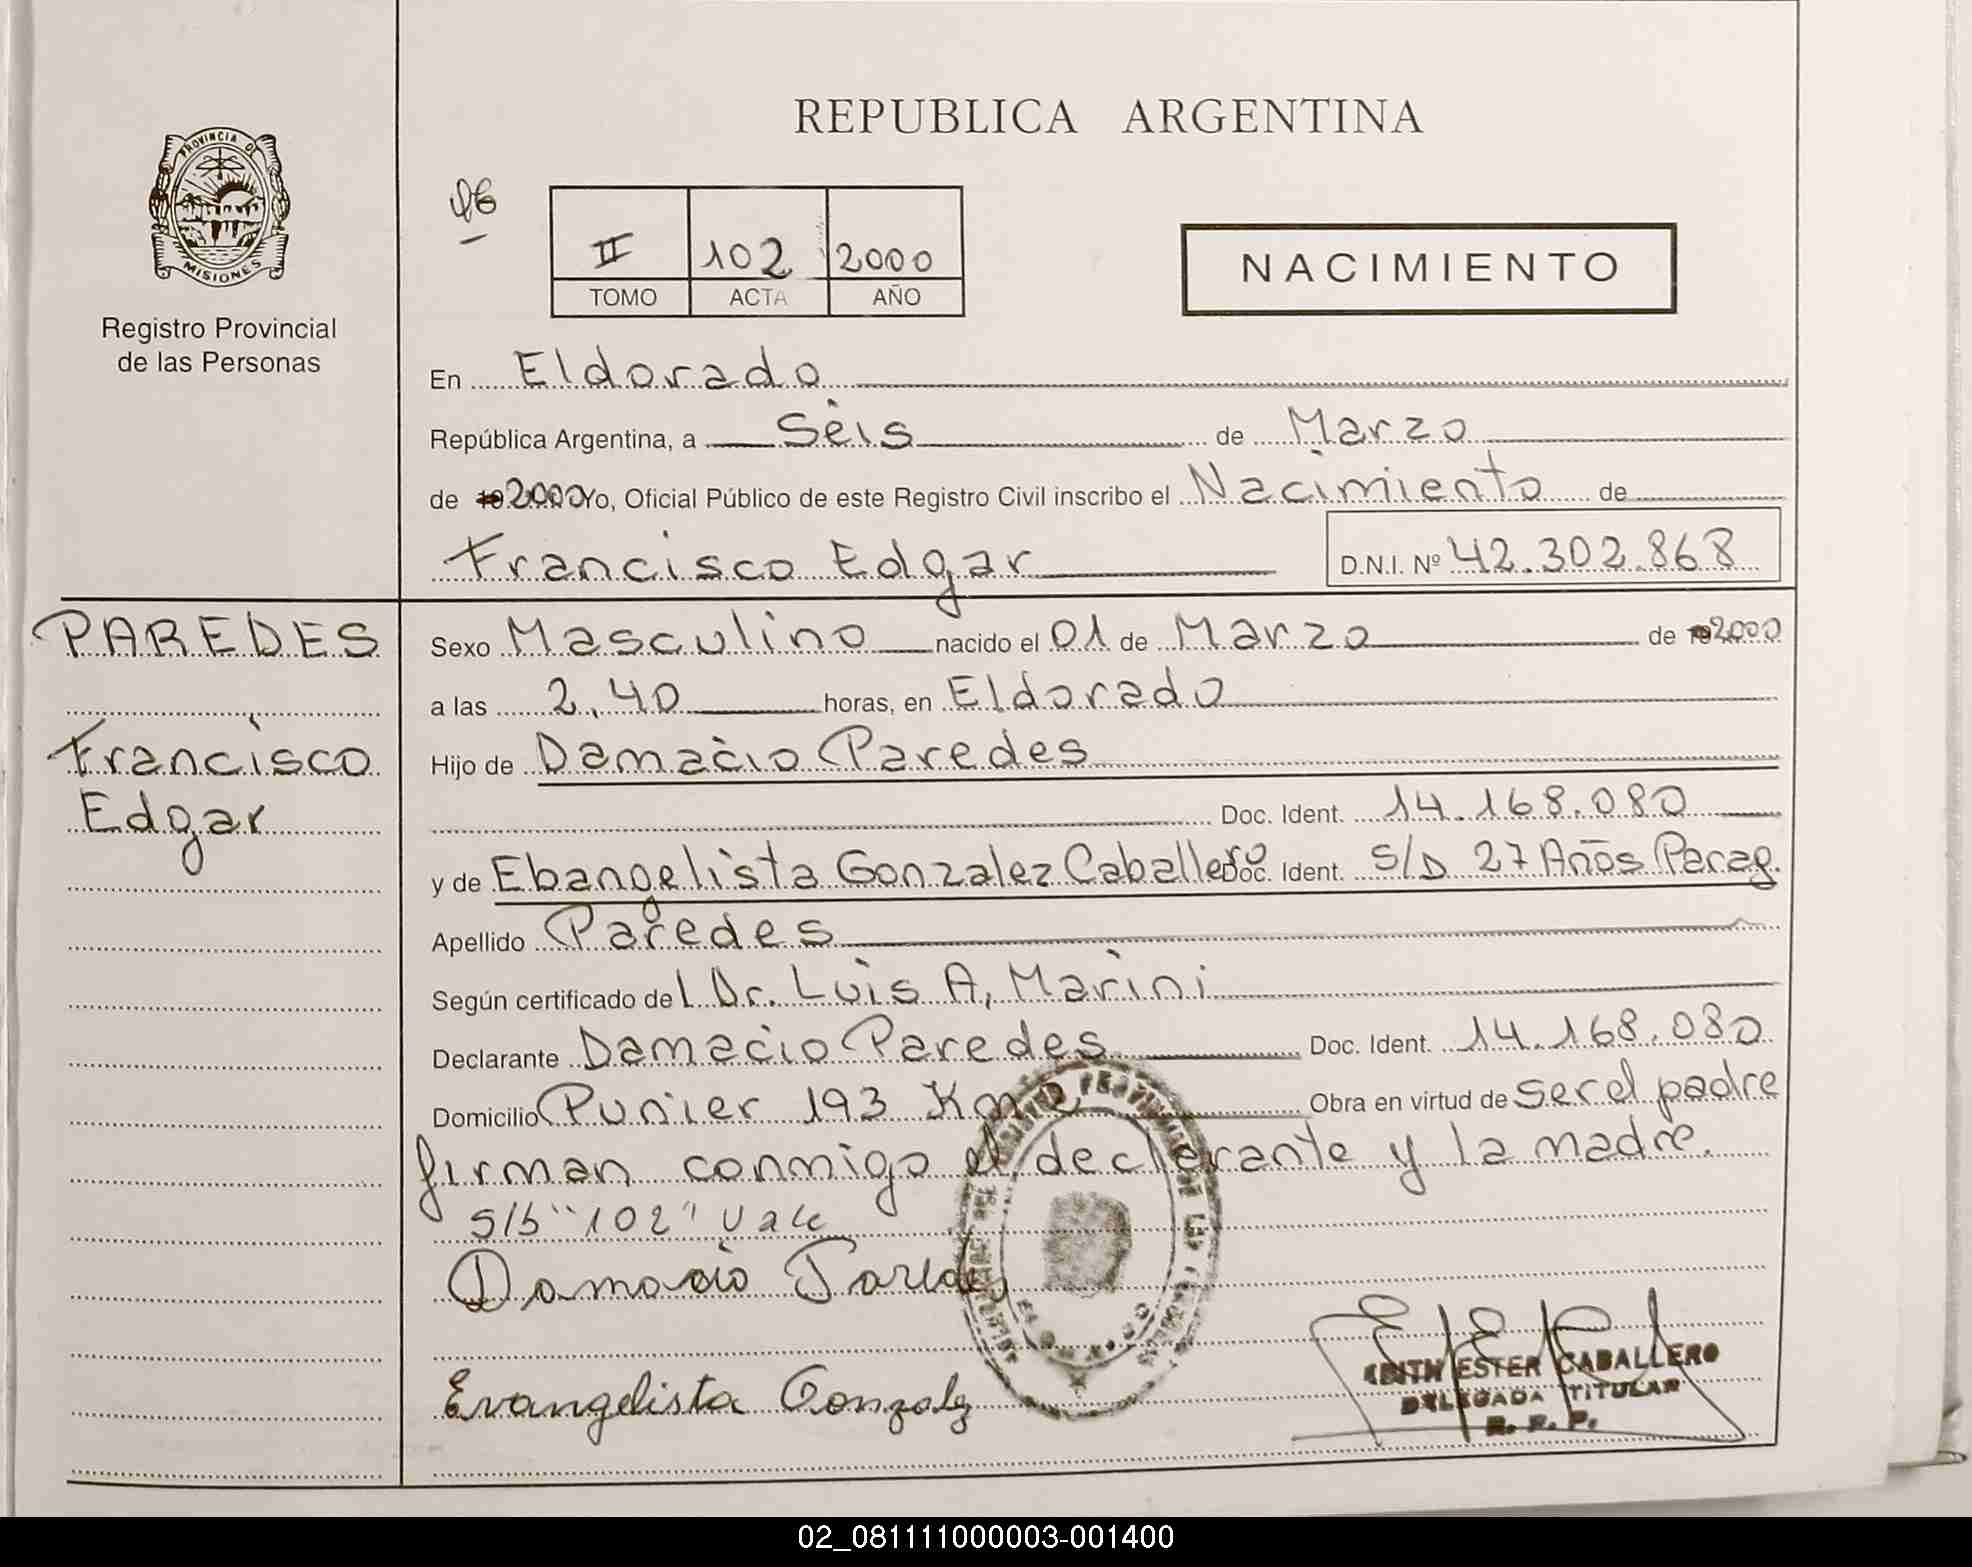 REPUBLICA ARGENTINA
PROVINCIA DE
MISIONES
Registro Provincial
de las Personas
II 102 2000
TOMO ACTA AÑO
NACIMIENTO
En Eldorado
República Argentina, a Seis de Marzo
de 2000 Yo, Oficial Público de este Registro Civil inscribo el Nacimiento de
Francisco Edgar D.N.I. Nº 42.302.868
PAREDES
Francisco
Edgar
Sexo Masculino nacido el 01 de Marzo de 2000
a las 2,40 horas, en Eldorado
Hijo de Damacio Paredes
Doc. Ident. 14.168.080
y de Ebangelista Gonzalez Caballero Doc. Ident. S/D 27 Años Parag.
Apellido Paredes
Según certificado del Dr. Luis A, Marini
Declarante Damacio Paredes Doc. Ident. 14.168.080
Domicilio 193 Obra en virtud de ser el padre
firman conmigo el declarante y la madre.
S/b "102" Vale
Damacio Paredes
Evangelista Gonzalez
EDITH ESTER CABALLERO
DELEGADA TITULAR
R. P. P.
02_081111000003-001400